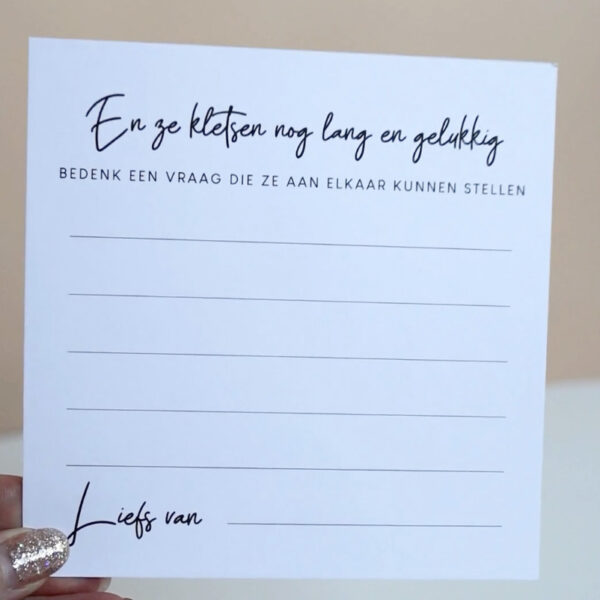 En ze kletsen nog lang en gelukkig
BEDENK EEN VRAAG DIE ZE AAN ELKAAR KUNNEN STELLEN
Liefs van